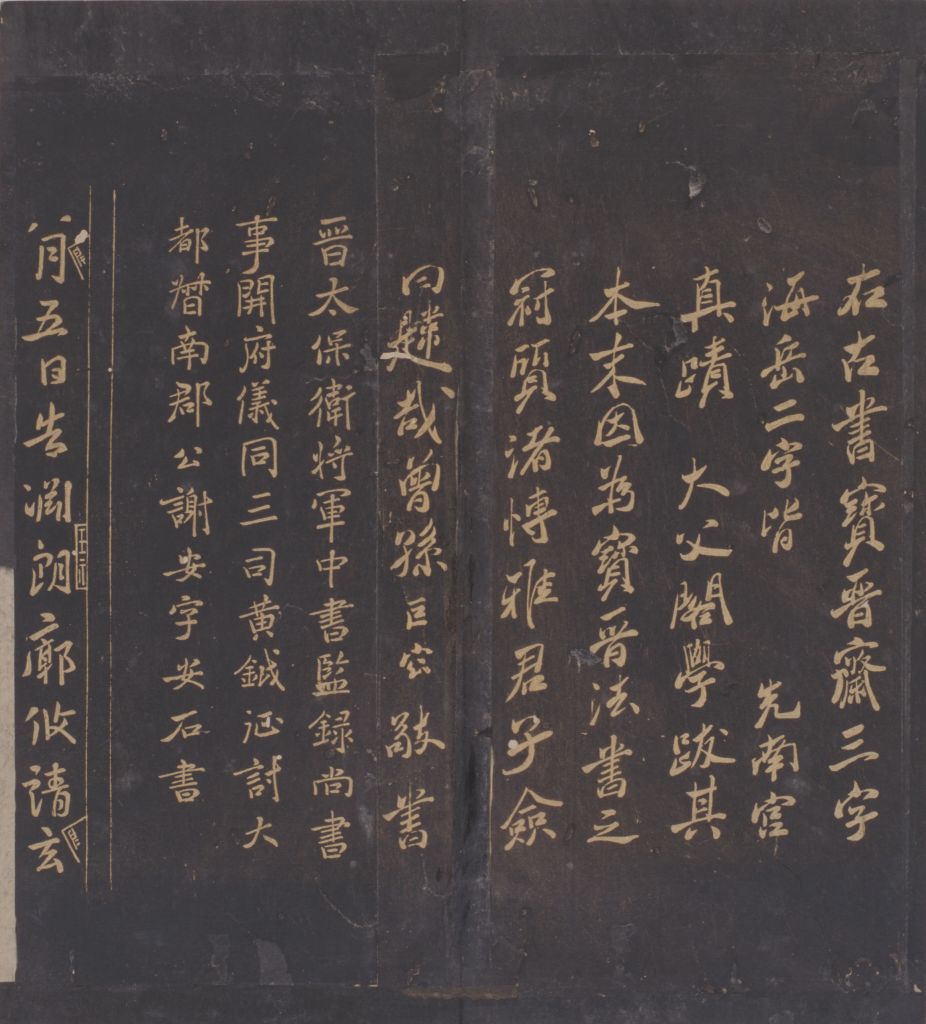 右古書寶晉齋三字
海岳二字皆 先南宮
真蹟 大父閣學跋其
本末因為寶晉法書之
冠質諸博雅君子僉
曰韙哉曾孫巨容 敬書
晉太保衛將軍中書監録尚書
事開府儀同三司黃鉞征討大
都督南郡公謝安字安石書
八月五日告淵朗廓攸靖玄